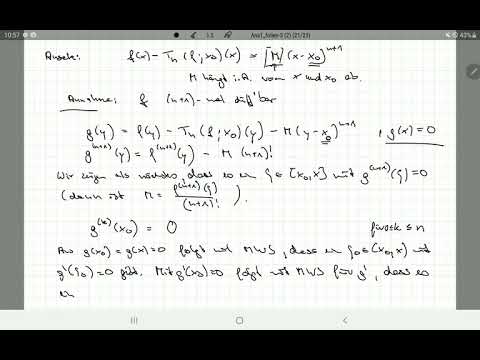 10:57 Ana1_folien-3 (2) (21/23) 43%
Ansatz: f(x) - Tₙ(f; x₀)(x) = [M] (x-x₀)ⁿ⁺¹
M hängt i.A. von x und x₀ ab.
Annahme: f (n+1)-mal diff'bar
g(y) = f(y) - Tₙ(f; x₀)(y) - M(y-x₀)ⁿ⁺¹ , g(x) = 0
g⁽ⁿ⁺¹⁾(y) = f⁽ⁿ⁺¹⁾(y) - M (n+1)!
Wir zeigen als nächstes, dass es ein ξ ∈ [x₀, x] mit g⁽ⁿ⁺¹⁾(ξ) = 0
(dann ist M = f⁽ⁿ⁺¹⁾(ξ) / (n+1)! ).
g⁽ᵏ⁾(x₀) = 0 für 0≤k≤n
Aus g(x₀) = g(x) = 0 folgt mit MWS, dass ein ξ₀ ∈ (x₀, x) mit
g'(ξ₀) = 0 gibt. Mit g'(x₀) = 0 folgt mit MWS für g', dass es
ein